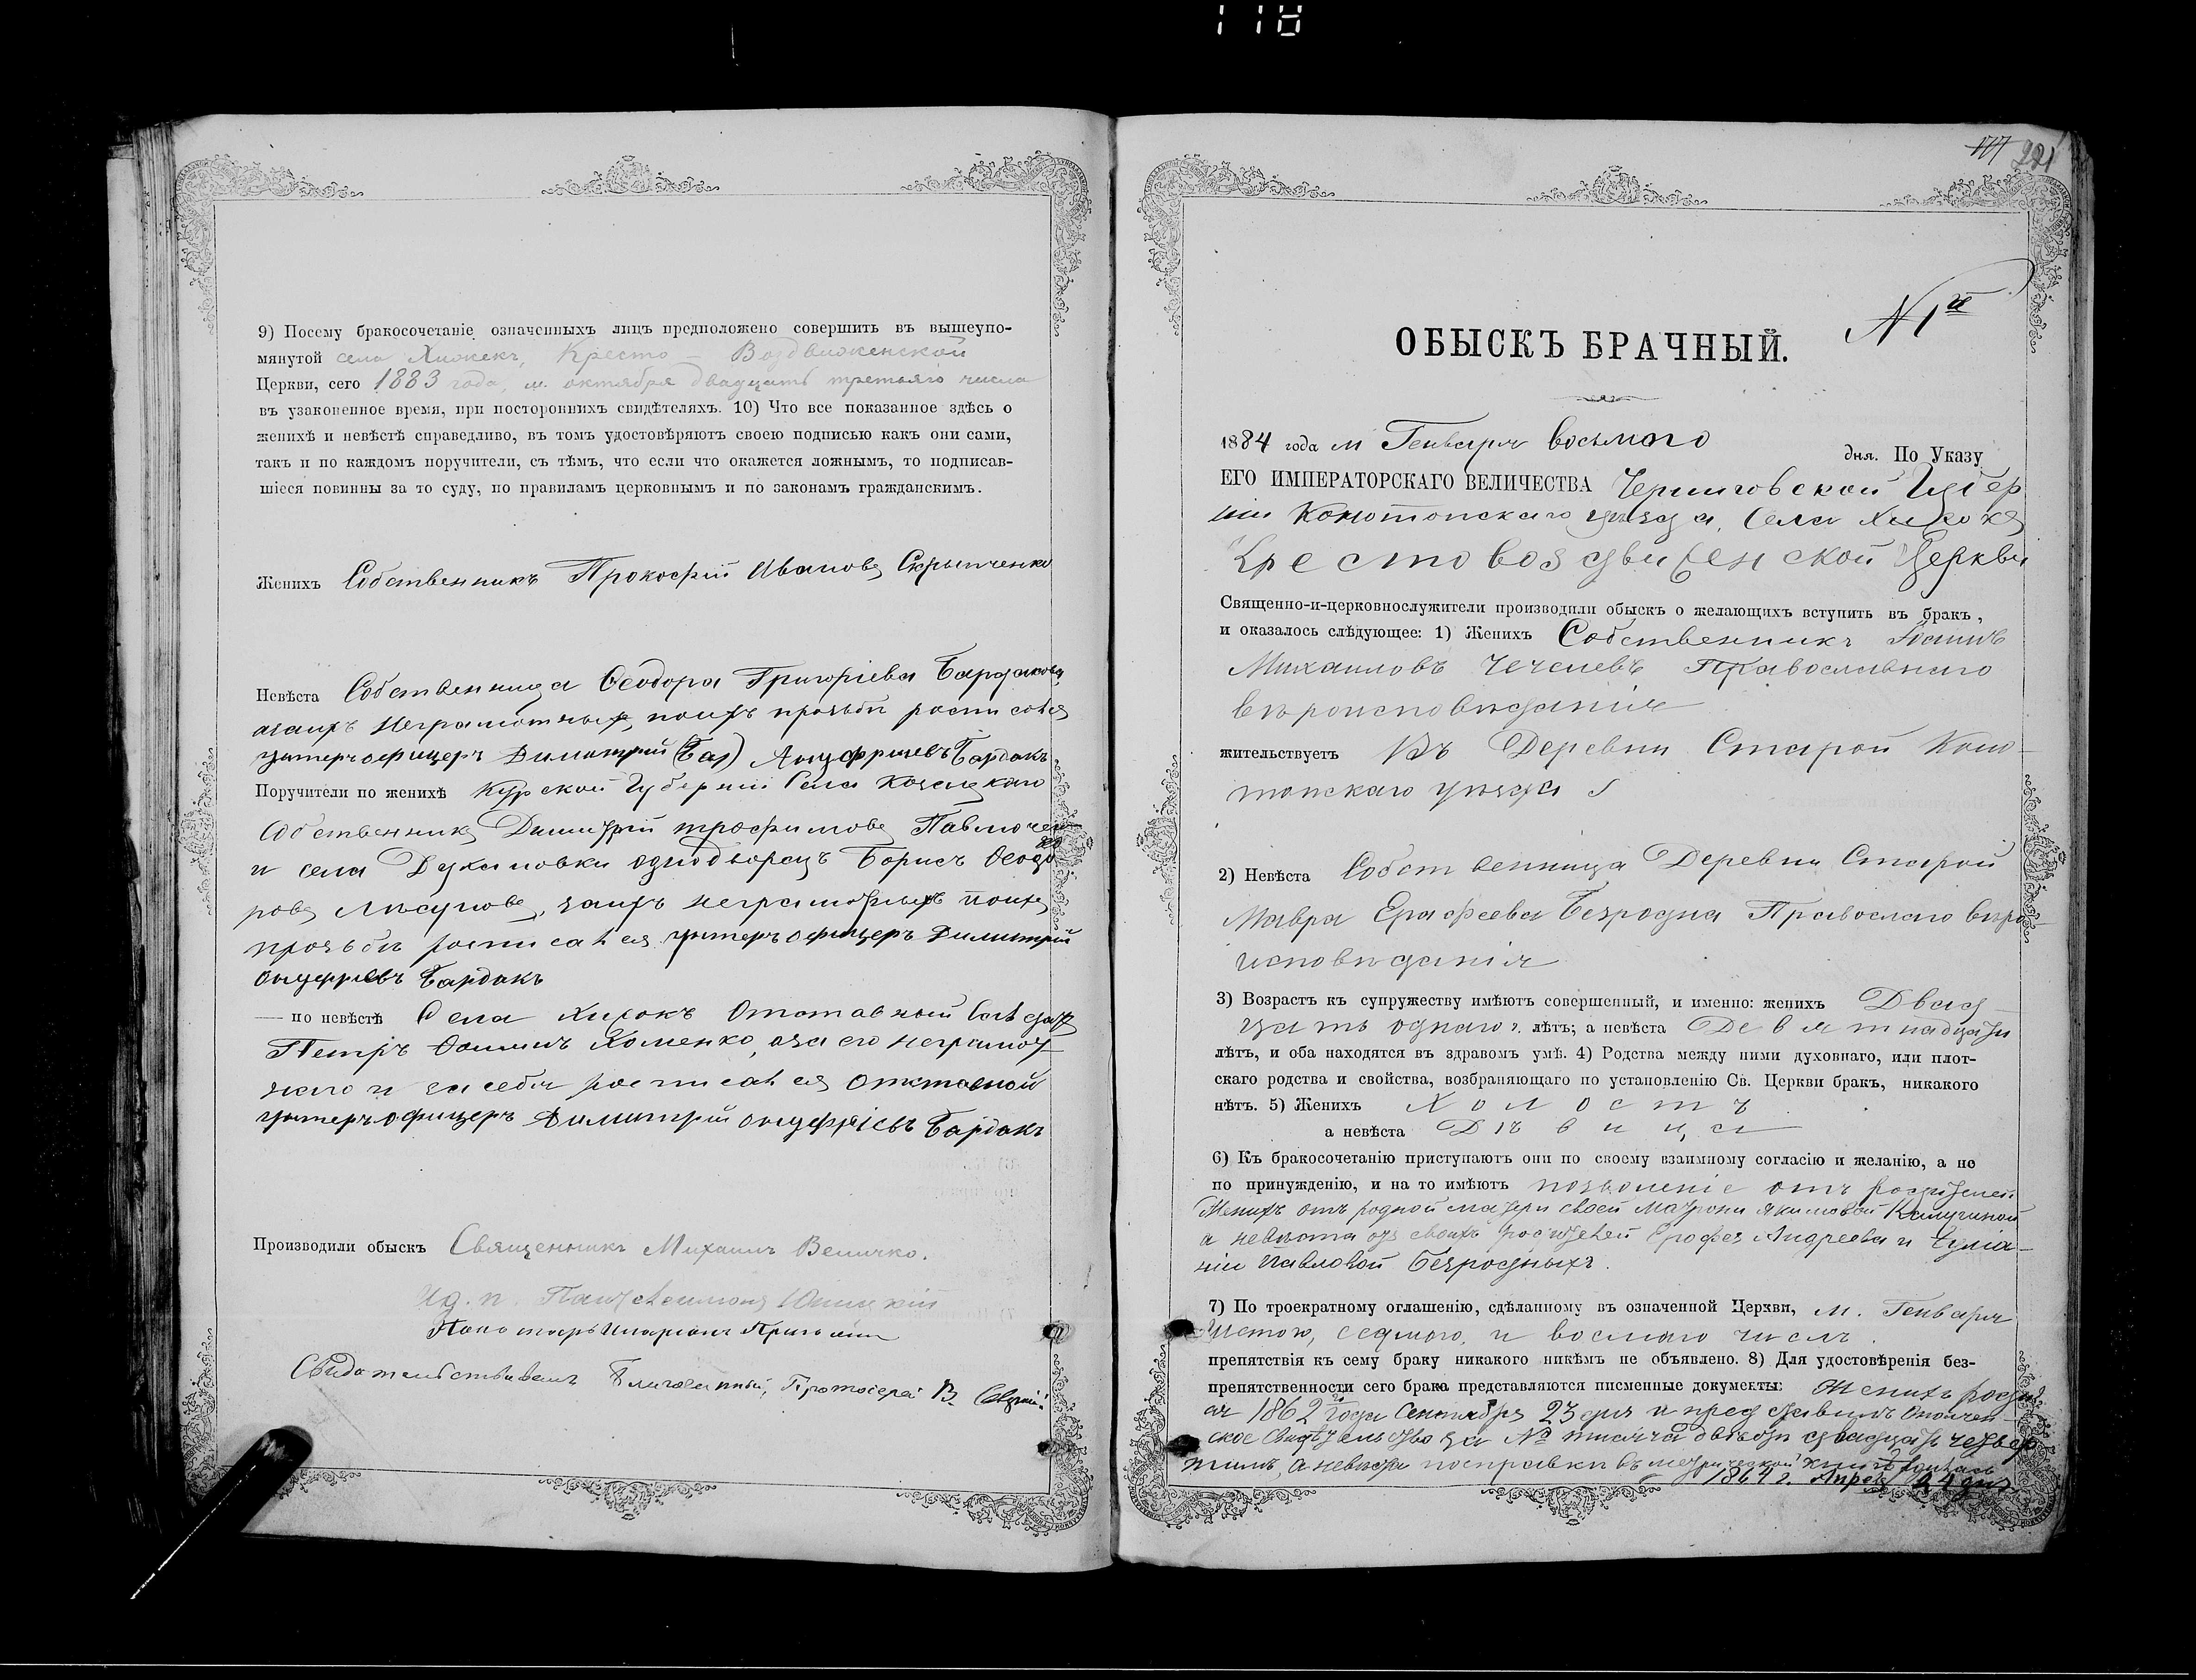 118
9) Посему бракосочетаніе означенныхъ лицъ предположено совершить въ вышеупо-
мянутой села Хижекъ, Кресто-Воздвиженской
Церкви, сего 1883 года, м. октября двадцать третьяго числа
въ узаконенное время, при постороннихъ свидѣтеляхъ. 10) Что все показанное здѣсь о
женихѣ и невѣстѣ справедливо, въ томъ удостовѣряютъ своею подписью какъ они сами,
такъ и по каждомъ поручители, съ тѣмъ, что если что окажется ложнымъ, то подписав-
шіеся повинны за то суду, по правиламъ церковнымъ и по законамъ гражданскимъ.
Женихъ Собственникъ Прокофій Ивановъ Скрыпченко
Невѣста Собственница Ѳеодора Григоріева Бардакова
азаихъ неграмотныхъ, поихъ прозьбѣ росписался
унтерчофицеръ Димитрій (Баг) Ануфріевъ Бардакъ
Поручители по женихѣ Курской Губерніи Села Козацкаго
Собственникъ Димитрій трофимовъ Павлючен
ко
и села Духановки однодворецъ Борисъ Ѳеодо
ровъ Лѣсуновъ, заихъ неграмотныхъ поихъ
прозьбѣ росписался унтерчофицеръ Димитрій
онуфріевъ Бардакъ
— по невѣстѣ Села Хижокъ Отставный Солдатъ
Петръ Ѳоминъ Хоменко, аза его неграмот
наго и засебя росписался отставной
унтерчофицеръ Димитрій онуфріевъ Бардакъ
Производили обыскъ Священникъ Михаилъ Величко.
Ид. п. Пантелеимонъ
Понамарь Иларіонъ
Свидѣтельствовалъ Благочинный, Протоіерей В.
221
ОБЫСКЪ БРАЧНЫЙ.
N 1й
1884 года м Генваря восьмого дня. По Указу
ЕГО ИМПЕРАТОРСКАГО ВЕЛИЧЕСТВА Черниговской Губер
ніи Конотопскаго уѣзда, Села Хижокъ
Крестовоздвиженской Церкви
Священно-и-церковнослужители производили обыскъ о желающихъ вступить въ бракъ,
и оказалось слѣдующее: 1) Женихъ Собственникъ
Михаиловъ Чечневъ Православнаго
вѣроисповѣданія
жительствуетъ Въ Деревни Старой Коно-
топскаго уѣзда
2) Невѣста Собственница Деревни Старой
Мавра Ерофеева Безродна Православнаго вѣро-
исповѣданія
3) Возрастъ къ супружеству имѣютъ совершенный, и именно: женихъ Двад
цать одного г. лѣтъ; а невѣста Девятнадцать
лѣтъ, и оба находятся въ здравомъ умѣ. 4) Родства между ними духовнаго, или плот-
скаго родства и свойства, возбраняющаго по установленію Св. Церкви бракъ, никакого
нѣтъ. 5) Женихъ Холостъ
а невѣста Дѣвица
6) Къ бракосочетанію приступаютъ они по своему взаимному согласію и желанію, а не
по принужденію, и на то имѣютъ позволеніе отъ родителей
Женихъ отъ родной матери своей Матрони Якимовой Калугиной
а невѣста отъ своихъ родителей Ерофея Андреева и Іуліа-
ніи Павловой Безродныхъ.
7) По троекратному оглашенію, сдѣланному въ означенной Церкви, м. Генваря
шестого, седмого, и восмаго числъ.
препятствія къ сему браку никакого никѣмъ не объявлено. 8) Для удостовѣренія без-
препятственности сего брака представляются писменные документы: Женихъ родил
ся 1862 Года Сентября 23 дня и представилъ
ское Свидѣтельство за № тисяча двѣсти двадцать четвер
тимъ, а невѣста посправки въ метрической книгѣ родилась
1864 г. Апреля 24 дня